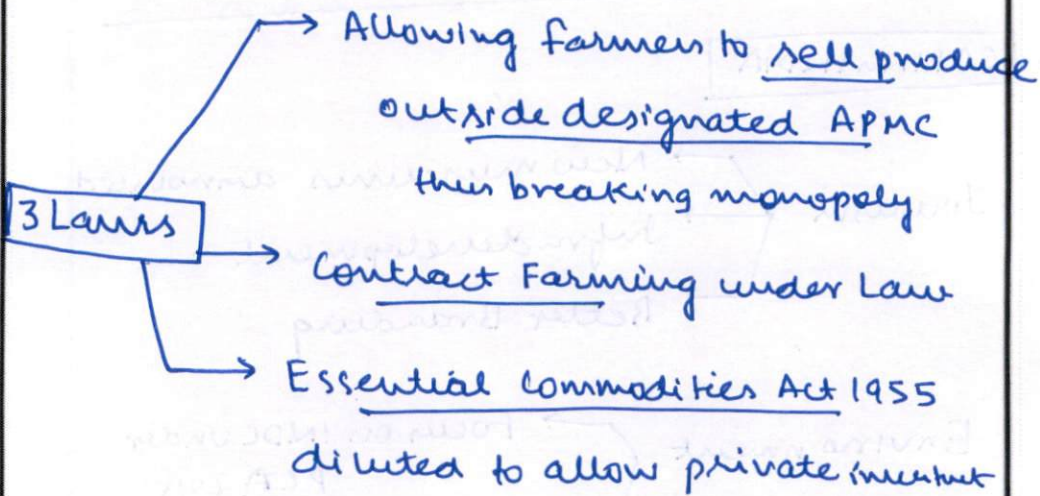 Allowing farmers to sell produce
outside designated APMC
thus breaking monopoly
3 Laws
Contract Farming under Law
Essential Commodities Act 1955
diluted to allow private